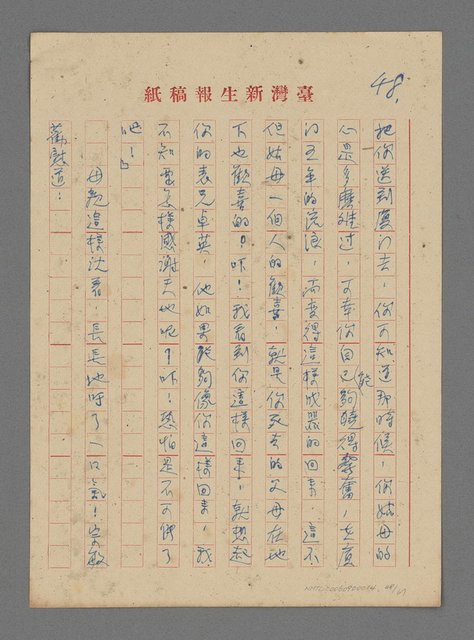 臺灣新生報稿紙
48.
把你送到廈门去，你可知道那時候，你姑母的
心是多麼难过，可幸你自己能夠曉得奮奮，在廈
门五年的流浪，而变得這樣成器的回來，這不
但姑母一個人的歡喜，就是你死去的父母在地
下也歡喜的！咔！我看到你這樣回來！就想起
你的表兄卓英，他如果能夠像你這樣回來，我
不知要怎樣感謝天地呢？咔！恐怕是不可能了
吧！」
母親這樣沈着，長長地呼了一口氣！宗敏
勸慰道：
NMTL20050920034 48/61